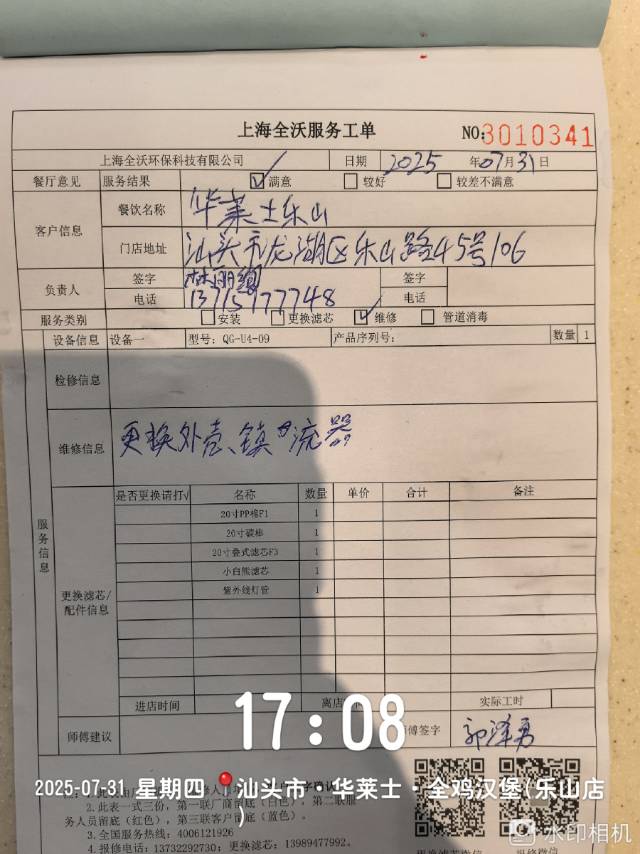 上海全沃服务工单 NO:3010341
上海全沃环保科技有限公司 日期 2025 年07月31日
餐厅意见 服务结果 ☑满意 □较好 □较差不满意
客户信息 餐饮名称 华莱士乐山
门店地址 汕头市龙湖区乐山路45号106
负责人 签字 签字
电话 13715977748 电话
服务类别 □安装 □更换滤芯 ☑维修 □管道消毒
设备信息 设备一 型号: QG-U4-09 产品序列号: 数量 1
检修信息
维修信息 更换外壳、镇流器
服务信息
更换滤芯/配件信息
是否更换请打√ 名称 数量 单价 合计 备注
20寸PP棉F1 1
20寸碳棒 1
20寸叠式滤芯F3 1
小白熊滤芯 1
紫外线灯管 1
进店时间 离店 实际工时
师傅建议 师傅签字 郭泽勇
17:08
2025-07-31 星期四 汕头市·华莱士·全鸡汉堡(乐山店)
2.此表一式三份，第一联厂商留底（白色），第二联服
务人员留底（红色），第三联客户留底（蓝色）。
3.全国服务热线: 4006121926
4.报修电话: 13732292730; 更换滤芯: 13989477992.
水印相机